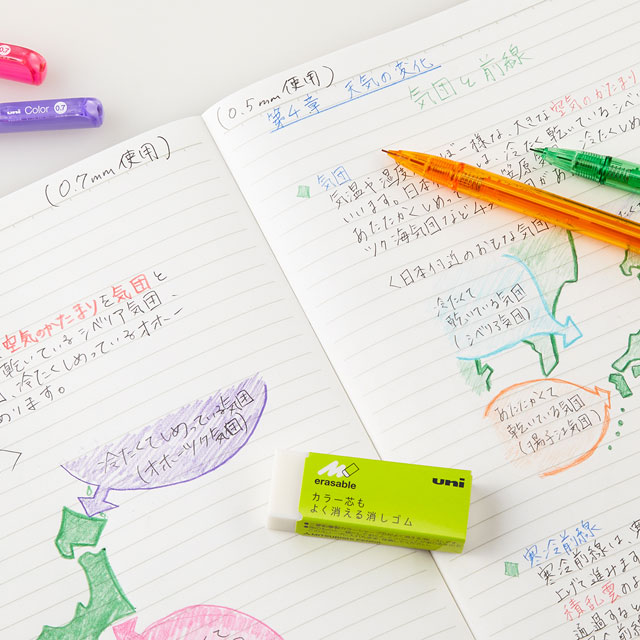 0.7
uni Color 0.7
(0.7mm 使用)
空気のかたまりを気団と
乾いているシベリア気団、
、冷たくしめっているオホー
あります。
冷たくてしめっている気団
(オホーツク気団)
(0.5mm使用)
第4章 天気の変化
気団と前線
気団
気温や湿度
ぼ一様な、大きな空気のかたまり
いいます。日本
は、冷たく乾いているシベ
あたたかくしめっ
ツク海気団など
<日本付近のおもな気団
冷たくて
乾いている気団
(シベリア気団)
あたたかくて
乾いている気団
(揚子江気団)
erasable
カラー芯も
よく消える消しゴム
uni
寒冷前線
寒冷前線は、寒
上げて進みます
積乱雲の
通過する